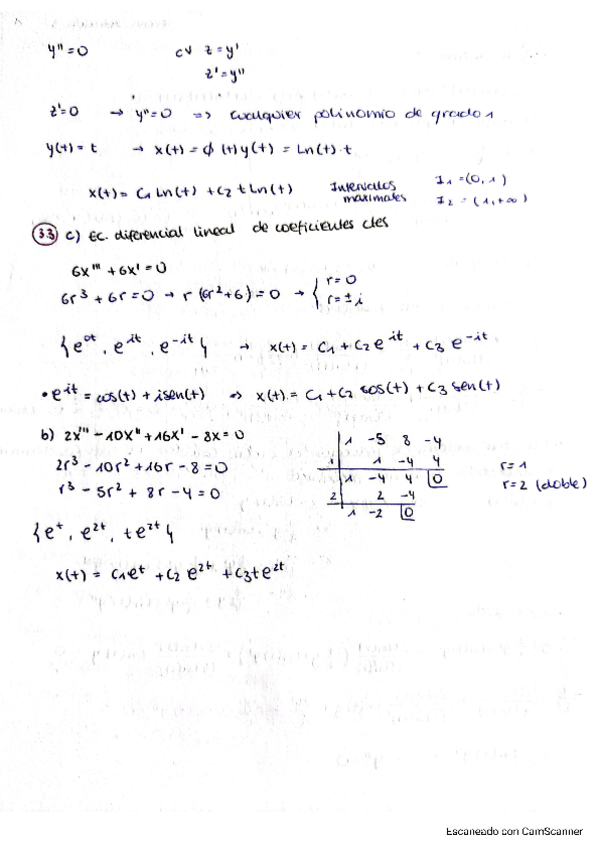 y'' = 0 cv z = y'
z' = y''
z' = 0 → y'' = 0 => cualquier polinomio de grado 1
y(t) = t → x(t) = φ(t) y(t) = Ln(t) · t
x(t) = C1 Ln(t) + C2 t Ln(t) Intervalos maximales I1 = (0, 1)
I2 = (1, +∞)
3.3 c) EC. diferencial lineal de coeficientes ctes
6x''' + 6x' = 0
6r³ + 6r = 0 → r (6r² + 6) = 0 → { r = 0
r = ± i
{e^0t, e^it, e^-it} → x(t) = C1 + C2 e^it + C3 e^-it
• e^it = cos(t) + i sen(t) => x(t) = C1 + C2 cos(t) + C3 sen(t)
b) 2x''' - 10x'' + 16x' - 8x = 0
2r³ - 10r² + 16r - 8 = 0
r³ - 5r² + 8r - 4 = 0
1 -5 8 -4
1 1 -4 4
1 -4 4 0
2 2 -4
1 -2 0
r = 1
r = 2 (doble)
{e^t, e^2t, te^2t}
x(t) = C1e^t + C2 e^2t + C3te^2t
Escaneado con CamScanner